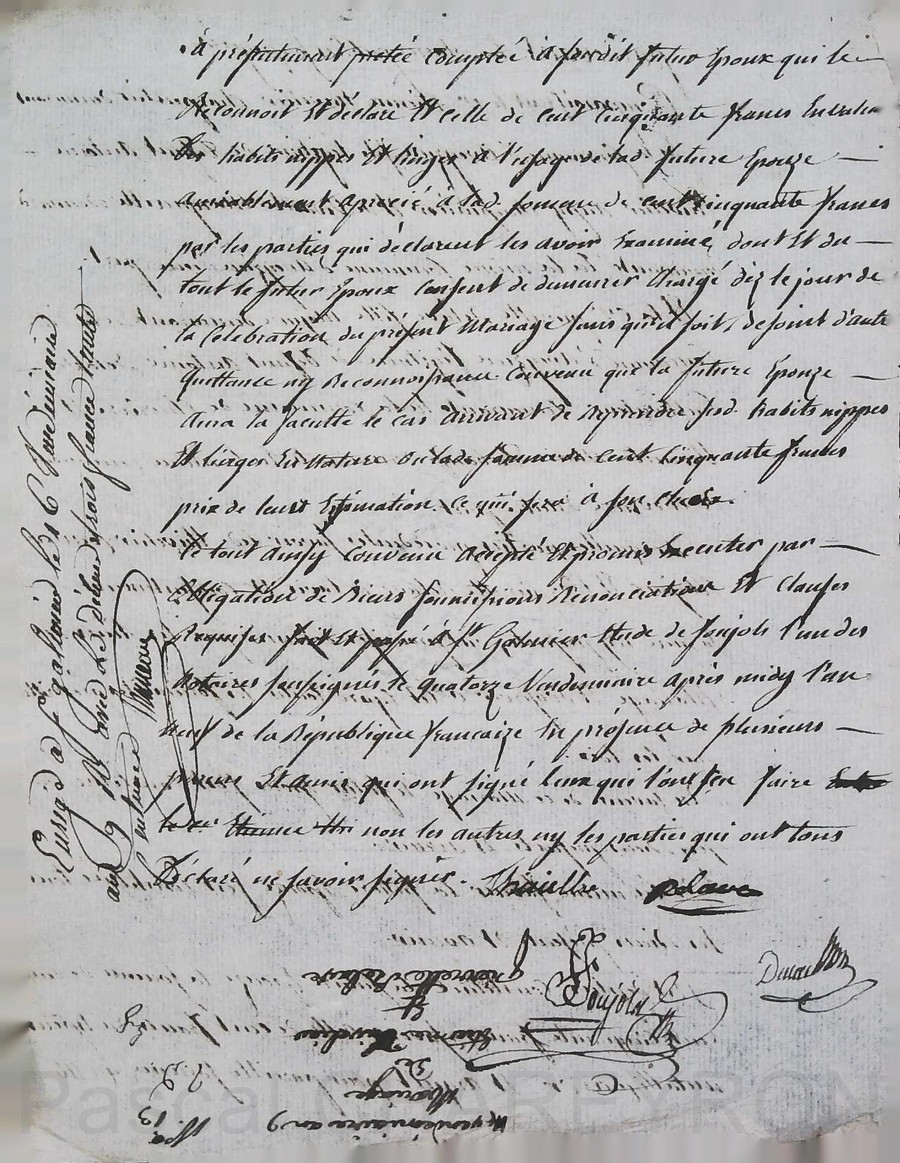 à présentement comptée à sondit futur Epoux qui le
Reconnoit Et déclare Et celle de cent Cinquante francs En valeur
Des habits nippes Et linges à l'usage de lad. future Epouze
amiablement aprecié à lad. somme de cent cinquante francs
par les parties qui déclarent les avoir Examiné, dont Et du
tout le futur Epoux Consent de demeurer Chargé déz le jour de
la Célébration du présent Mariage sans qu'il soit, besoint d'autre
quittance ny Reconnoissance Convenu que la future Epouze
Aura la faculté le cas Arrivant de Reprendre sesd. habits nippes
Et linges En Nature ou lade somme de cent Cinquante francs
prix de leurs Estimation, ce qui sera à son Choix.
Le tout Ainsy Convenu Accepté Et promis Executer par
Obligation de Biens soumissions Renonciations Et Clauses
Requises fait Et passé à St Galmier Etude de Poujols l'un des
Notaires soussignés le quatorze Vendemiaire après midy l'an
neuf de la République francaize En présence de plusieurs
parens Et amis qui ont signé Ceux qui l'ont sçu faire
le Cn Etienne non les autres ny les parties qui ont tous
Déclaré ne savoir signer.
Relave
Poujols
Enreg. à St galmier le 26 Vendémiaire
an 9
trois francs
Relave
Et
Etienne
De
Mariage
Vendémiaire an 9
13